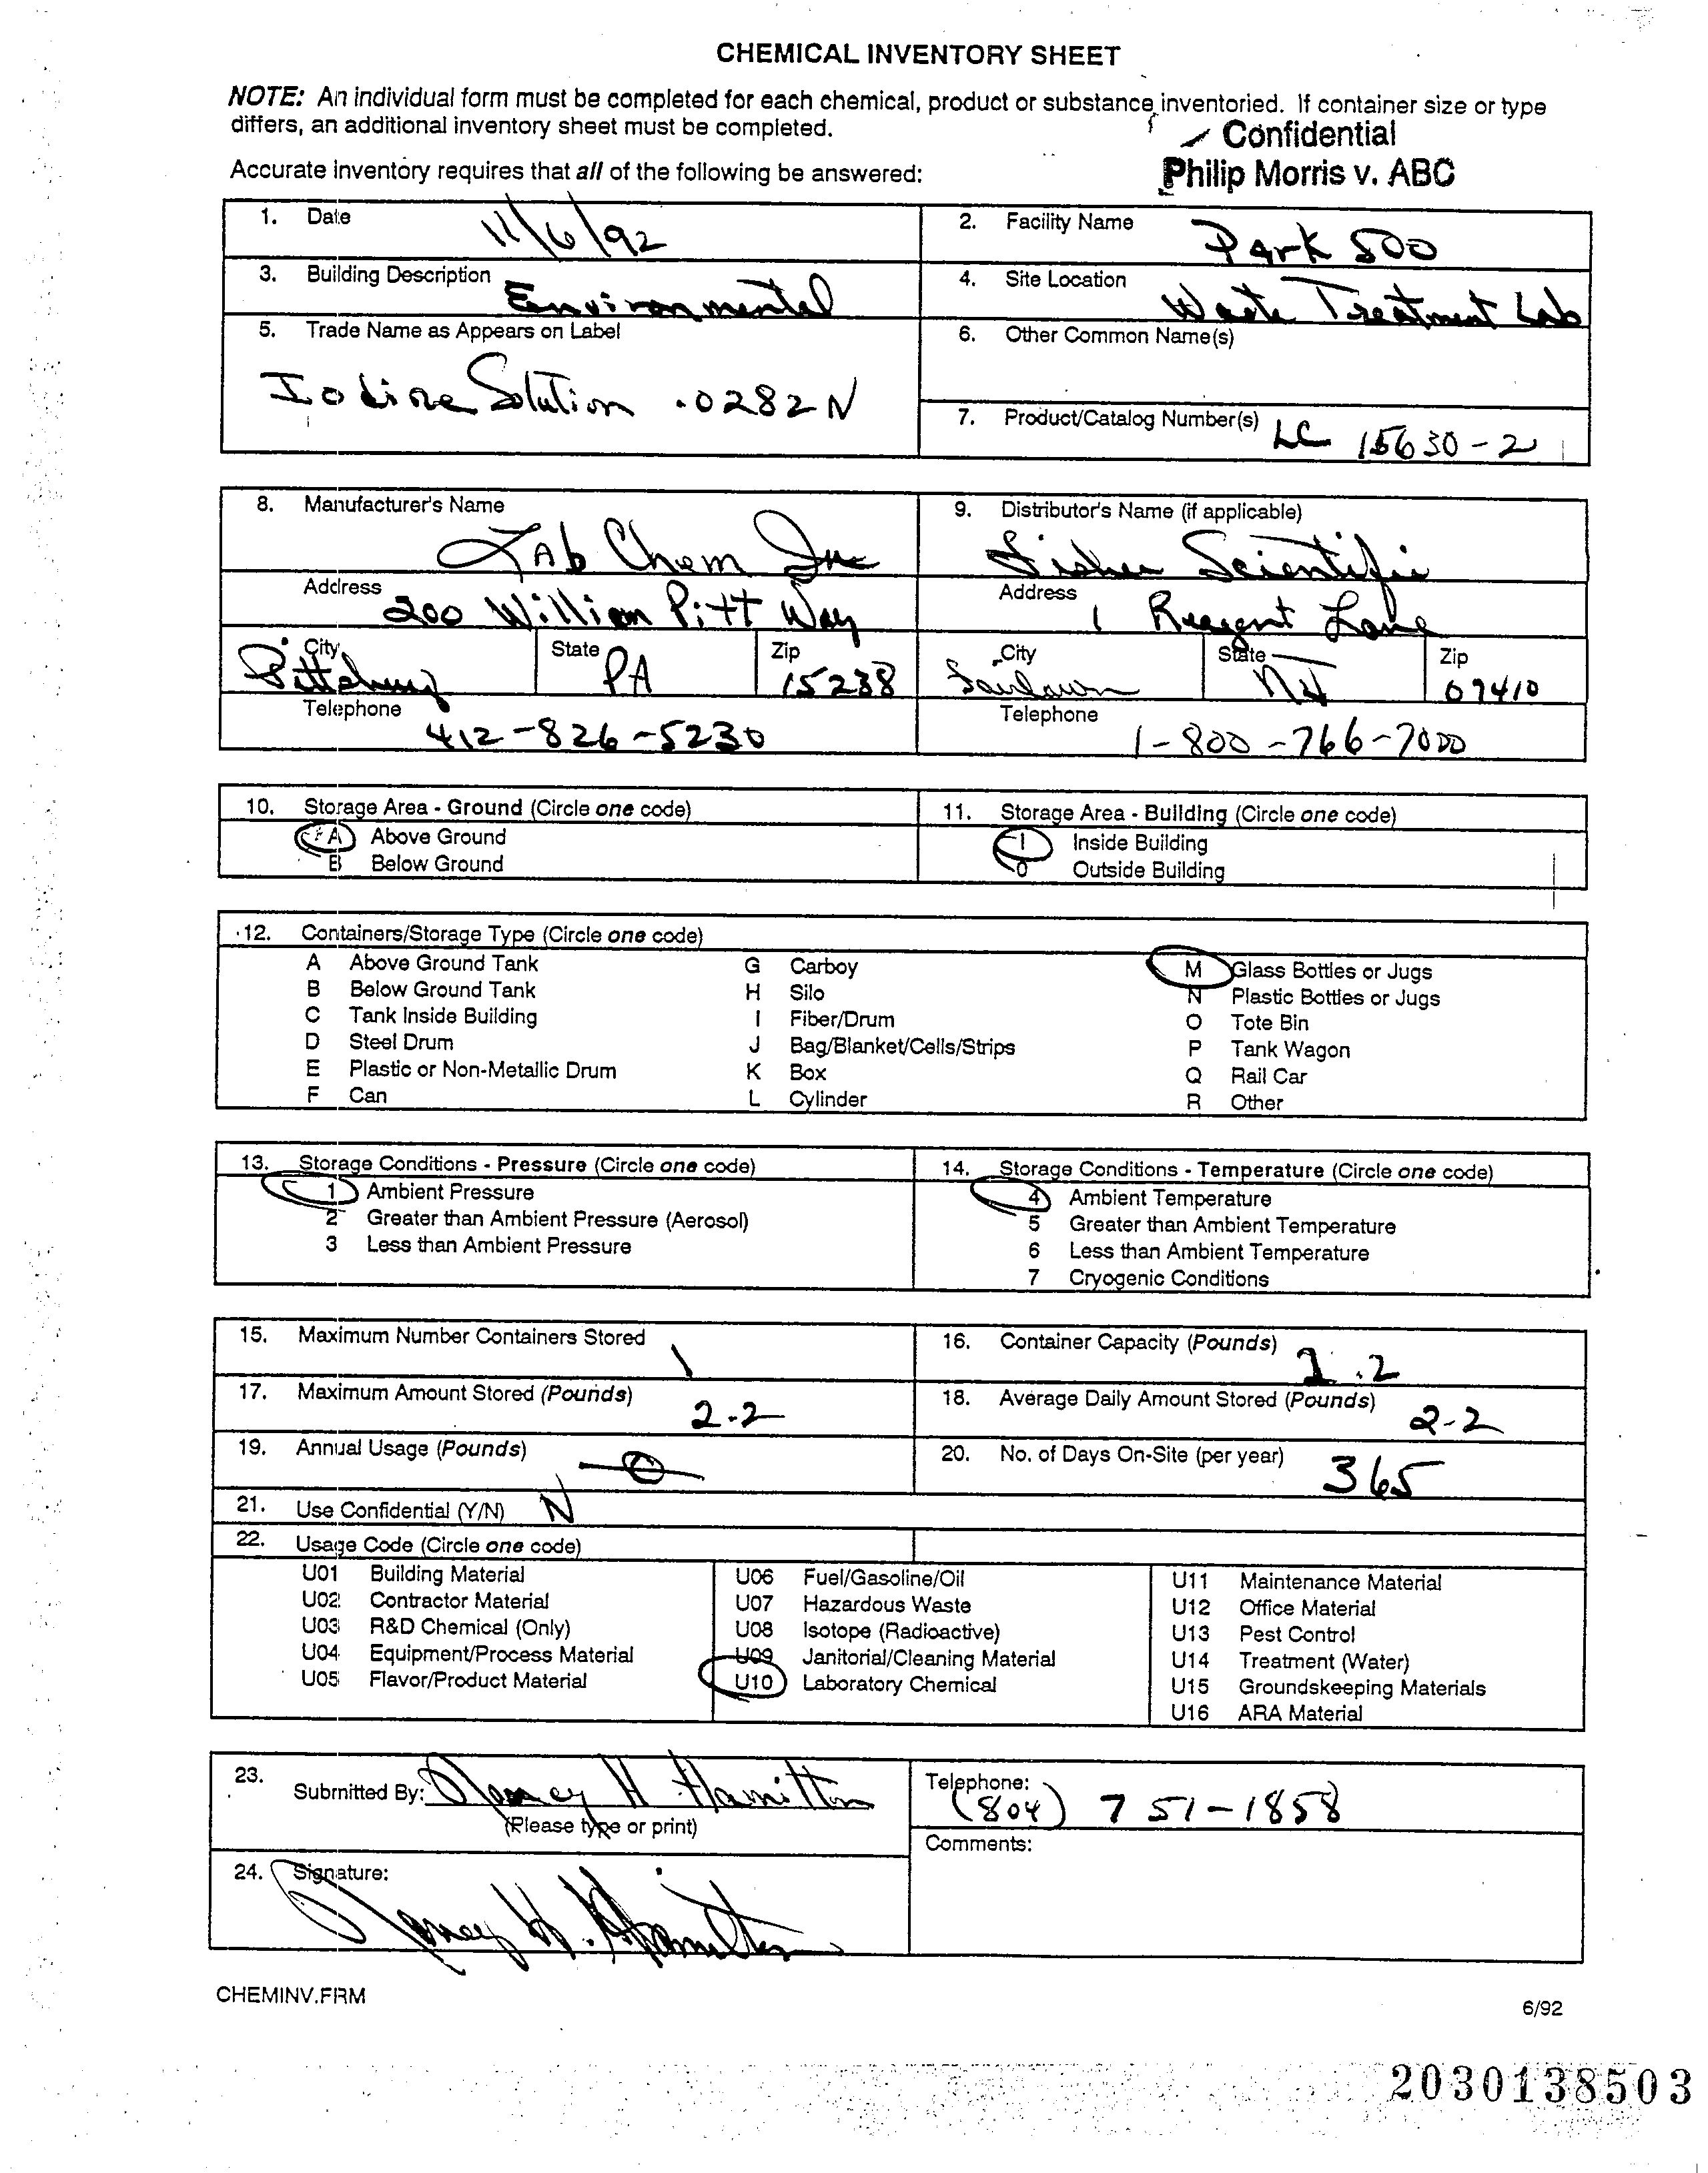 CHEMICAL INVENTORY SHEET
NOTE: An individual form must be completed for each chemical, product or substance inventoried. If container size or type
differs, an additional inventory sheet must be completed.
Confidential
Accurate inventory requires that all of the following be answered:
Philip Morris v. ABC
1. Date 11/6/92
2. Facility Name Park 500
3. Building Description Environmental
4. Site Location Waste Treatment Lab
5. Trade Name as Appears on Label
Iodine Solution .0282N
6. Other Common Name(s)
7. Product/Catalog Number(s) LC 15630-2
8. Manufacturer's Name
Lab Chem Inc
9. Distributor's Name (if applicable)
Fisher Scientific
Address 200 William Pitt Way
Address 1 Reagent Lane
City Pittsburg State PA Zip 15238
City Fairlawn State Zip 07410
Telephone 412-826-5230
Telephone 1-800-766-7000
10. Storage Area - Ground (Circle one code)
A Above Ground
B Below Ground
11. Storage Area - Building (Circle one code)
I Inside Building
O Outside Building
12. Containers/Storage Type (Circle one code)
A Above Ground Tank
B Below Ground Tank
C Tank Inside Building
D Steel Drum
E Plastic or Non-Metallic Drum
F Can
G Carboy
H Silo
I Fiber/Drum
J Bag/Blanket/Cells/Strips
K Box
L Cylinder
M Glass Bottles or Jugs
N Plastic Bottles or Jugs
O Tote Bin
P Tank Wagon
Q Rail Car
R Other
13. Storage Conditions - Pressure (Circle one code)
1 Ambient Pressure
2 Greater than Ambient Pressure (Aerosol)
3 Less than Ambient Pressure
14. Storage Conditions - Temperature (Circle one code)
4 Ambient Temperature
5 Greater than Ambient Temperature
6 Less than Ambient Temperature
7 Cryogenic Conditions
15. Maximum Number Containers Stored 1
16. Container Capacity (Pounds) 2.2
17. Maximum Amount Stored (Pounds) 2.2
18. Average Daily Amount Stored (Pounds) 2-2
19. Annual Usage (Pounds) 0
20. No. of Days On-Site (per year) 365
21. Use Confidential (Y/N) N
22. Usage Code (Circle one code)
U01 Building Material
U02 Contractor Material
U03 R&D Chemical (Only)
U04 Equipment/Process Material
U05 Flavor/Product Material
U06 Fuel/Gasoline/Oil
U07 Hazardous Waste
U08 Isotope (Radioactive)
U09 Janitorial/Cleaning Material
U10 Laboratory Chemical
U11 Maintenance Material
U12 Office Material
U13 Pest Control
U14 Treatment (Water)
U15 Groundskeeping Materials
U16 ARA Material
23. Submitted By: Nancy H Hamilton
(Please type or print)
Telephone:
(804) 751-1858
Comments:
24. Signature:
Nancy H. Hamilton
CHEMINV.FRM
6/92
2030138503